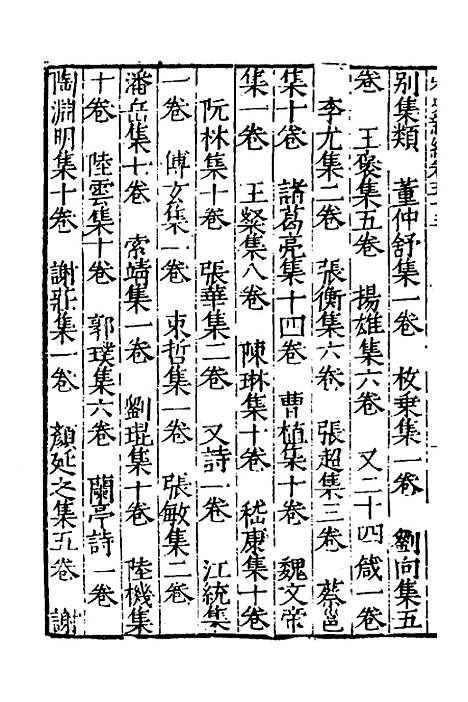 別集類　董仲舒集一卷　枚乗集一卷　劉向集五
卷　王褒集五卷　揚雄集六卷　又二十四箴一卷
李尤集二卷　張衡集六卷　張超集三卷　蔡邕
集十卷　諸葛亮集十四卷　曹植集十卷　魏文帝
集一卷　王粲集八卷　陳琳集十卷　嵇康集十卷
阮林集十卷　張華集二卷　又詩一卷　江統集
一卷　傅玄集一卷　束晳集一卷　張敏集二卷
潘岳集七卷　索靖集一卷　劉琨集十卷　陸機集
十卷　陸雲集十卷　郭璞集六卷　蘭亭詩一卷
陶淵明集十卷　謝莊集一卷　顏延之集五卷　謝